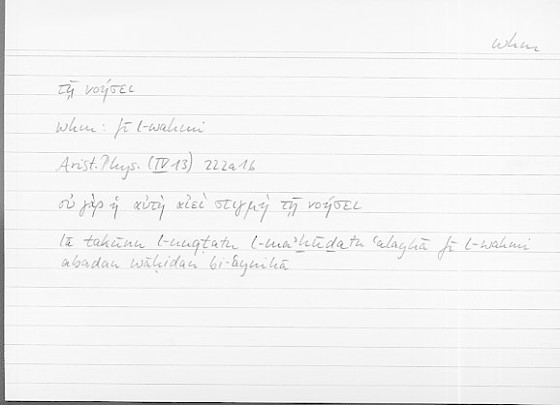 whm
τῇ νοήσει
whm: fī l-wahmi
Arist. Phys. (IV 13) 222a16
οὐ γὰρ ἡ αὐτὴ αἰεὶ στιγμὴ τῇ νοήσει
lā takūnu l-nuqṭatu l-maʾḫūḏatu ʿalayhā fī l-wahmi
abadan wāḥidan bi-ʿaynihā